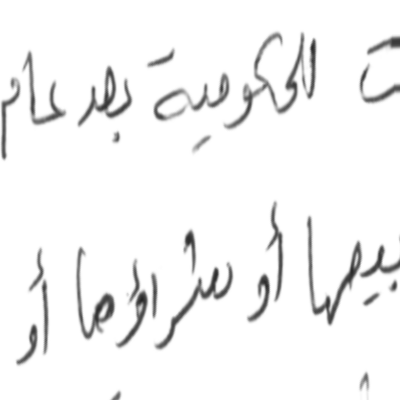 الحكومية بعد عام
بيعها أو شراؤها أو